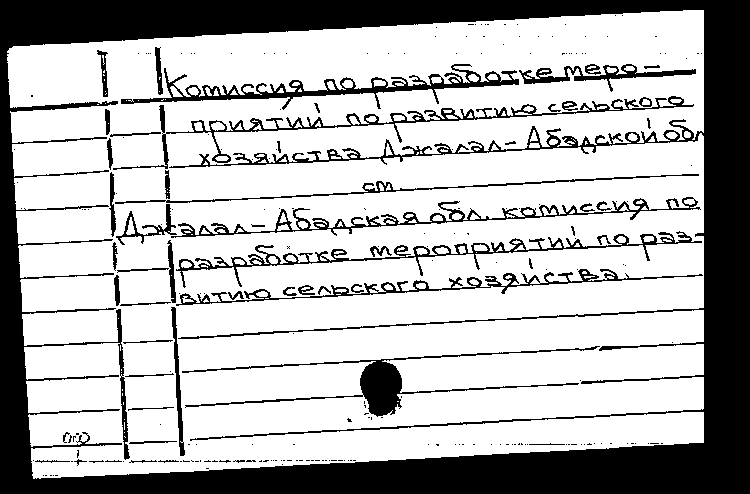 Комиссия по разработке меро-
приятий по развитию сельского
хозяйства Джалал-Абадской обл
см
Джалал-Абадская обл. комиссия по
разработке мероприятий по раз-
витию сельского хозяйства.